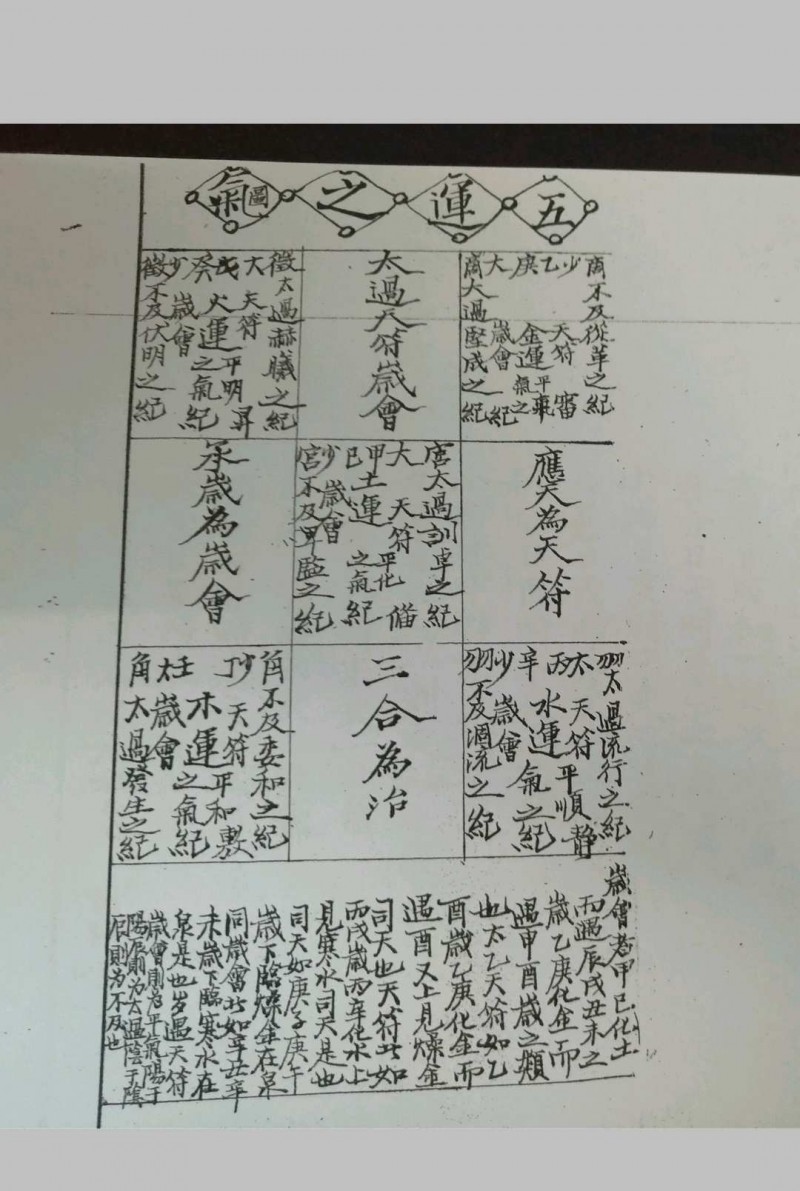 五運之氣圖
商不及從革之紀
少天符審
乙庚金運平氣之紀
大歲會
商大過堅成之紀
太過天符歲會
徵太過赫曦之紀
大天符平明昇
戊癸火運之氣紀
少歲會
徵不及伏明之紀
應天為天符
宮太過訓阜之紀
大天符平化備
甲己土運之氣紀
少歲會
宮不及卑監之紀
承歲為歲會
羽太過流行之紀
太天符平順静
丙辛水運氣之紀
少歲會
羽不及涸流之紀
三合為治
角不及委和之紀
少天符平和敷
丁壬木運之氣紀
太歲會
角太過發生之紀
歲會若甲己化土
而遇辰戌丑未之
歲乙庚化金而
遇甲酉歲之類
也太乙天符如乙
酉歲乙庚化金而
遇酉又上見燥金
司天也天符此如
丙戌歲丙辛化水上
見寒水司天是也
同天如庚子庚午
歲下臨燥金在泉
同歲會此如辛丑辛
未歲下臨寒水在
泉是也岁遇天符
歲會則為平氣陽于
陽辰則為太過陰于陰
辰則为不及也